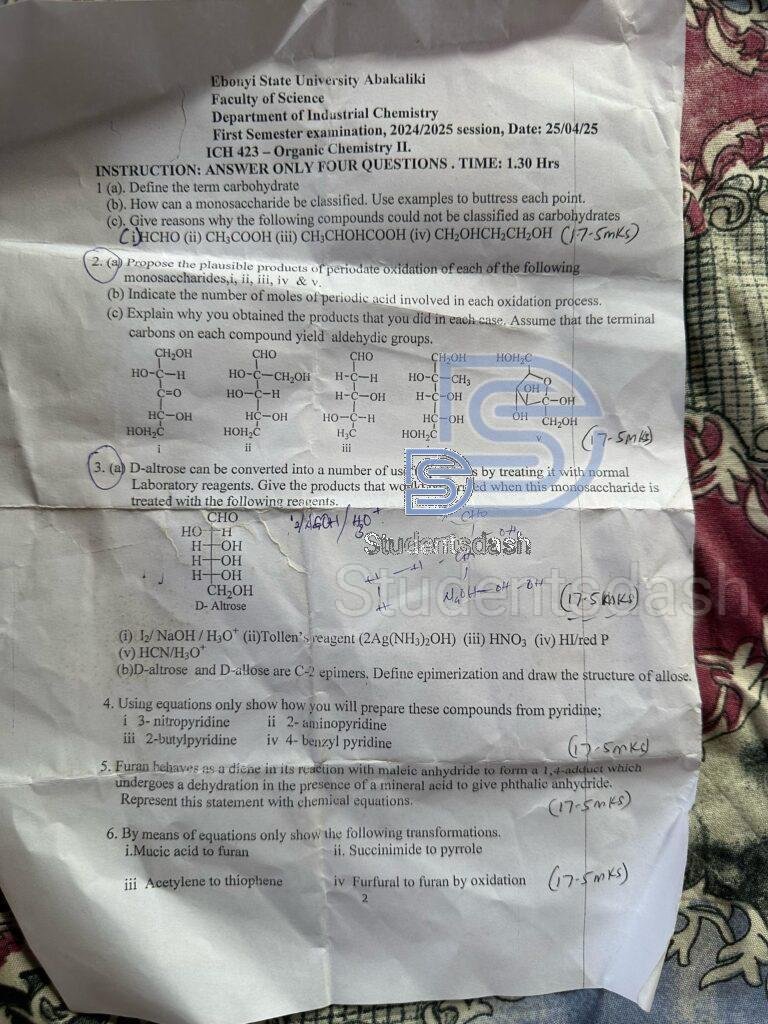 Ebonyi State University Abakaliki
Faculty of Science
Department of Industrial Chemistry
First Semester examination, 2024/2025 session, Date: 25/04/25
ICH 423 – Organic Chemistry II.
INSTRUCTION: ANSWER ONLY FOUR QUESTIONS . TIME: 1.30 Hrs
1 (a). Define the term carbohydrate
(b). How can a monosaccharide be classified. Use examples to buttress each point.
(c). Give reasons why the following compounds could not be classified as carbohydrates
(i) HCHO (ii) CH₃COOH (iii) CH₃CHOHCOOH (iv) CH₂OHCH₂CH₂OH (17-5mks)
2. (a) Propose the plausible products of periodate oxidation of each of the following
monosaccharides,i, ii, iii, iv & v.
(b) Indicate the number of moles of periodic acid involved in each oxidation process.
(c) Explain why you obtained the products that you did in each case. Assume that the terminal
carbons on each compound yield aldehydic groups.
CH₂OH CHO CHO CH₂OH HOH₂C
HO-C-H HO-C-CH₂OH H-C-H HO-C-CH₃ O
C=O HO-C-H H-C-OH H-C-OH OH C-OH
HC-OH HC-OH HO-C-H HC-OH OH CH₂OH
HOH₂C HOH₂C H₃C HOH₂C v (17-5mks)
i ii iii
3. (a) D-altrose can be converted into a number of by treating it with normal
Laboratory reagents. Give the products that when this monosaccharide is
treated with the following reagents.
CHO
HO H
H OH
H OH
H OH
CH₂OH
D- Altrose
Studentsdash
Studentsdash
(17-5mks)
(i) I₂/ NaOH / H₃O⁺ (ii)Tollen's reagent (2Ag(NH₃)₂OH) (iii) HNO₃ (iv) HI/red P
(v) HCN/H₃O⁺
(b)D-altrose and D-allose are C-2 epimers. Define epimerization and draw the structure of allose.
4. Using equations only show how you will prepare these compounds from pyridine;
i 3- nitropyridine ii 2- aminopyridine
iii 2-butylpyridine iv 4- benzyl pyridine (17-5mks)
5. Furan behaves as a diene in its reaction with maleic anhydride to form a 1,4-adduct which
undergoes a dehydration in the presence of a mineral acid to give phthalic anhydride.
Represent this statement with chemical equations. (17-5mks)
6. By means of equations only show the following transformations.
i.Mucic acid to furan ii. Succinimide to pyrrole
iii Acetylene to thiophene iv Furfural to furan by oxidation (17-5mks)
2